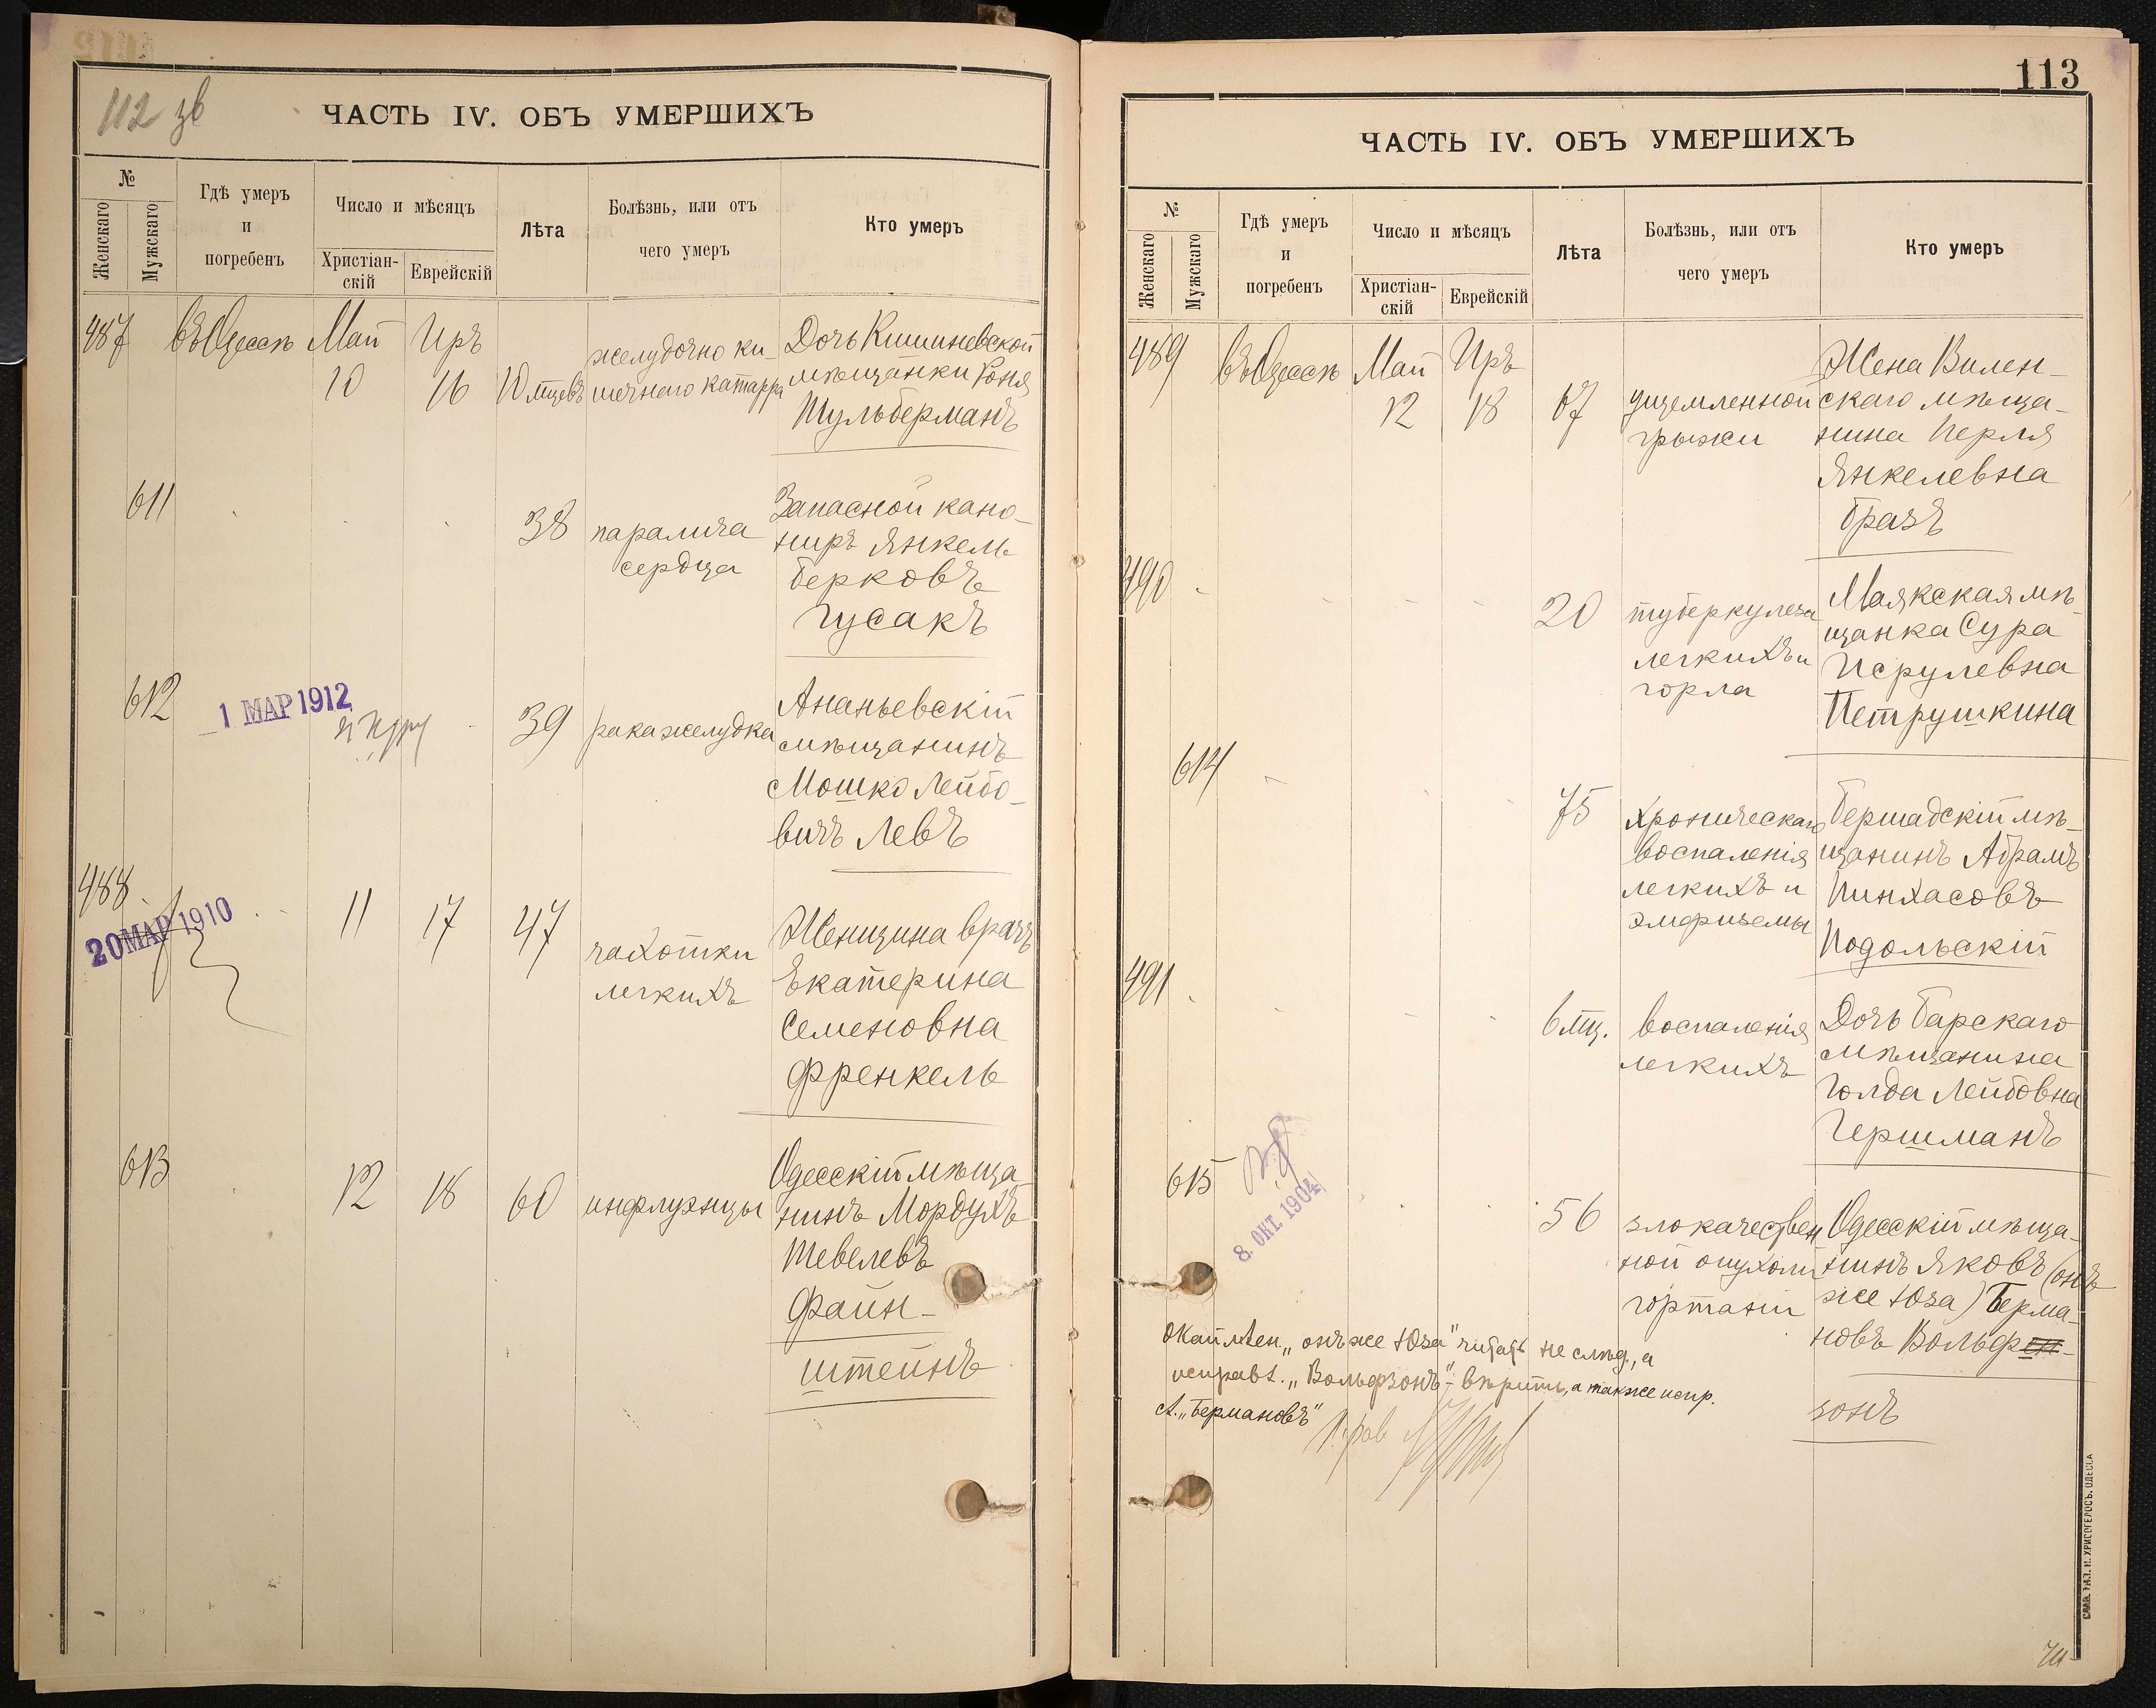 112 зв
ЧАСТЬ IV. ОБЪ УМЕРШИХЪ
№
Женскаго
Мужскаго
Гдѣ умеръ
и
погребенъ
Число и мѣсяцъ
Христіан-
скій
Еврейскій
Лѣта
Болѣзнь, или отъ
чего умеръ
Кто умеръ
487 въ Одессѣ Май Иръ
10 16 10 мцевъ
желудочно ки-
шечнаго катарра
Дочь Кишиневской
мѣщанки Хоня
Шульберманъ
611 38 паралича
сердца
Запасной кано-
ниръ Янкель
Берковъ
Гусакъ
612 1 МАР 1912
39 рака желудка
Ананьевскій
мѣщанинъ
Мошко Лейбо-
вичъ Левъ
488
20 МАР 1910
11 17 47 чахотки
легкихъ
Женщина врачъ
Екатерина
Семеновна
Френкель
613 12 18 60 инфлуэнцы
Одесскій мѣща-
нинъ Мордухъ
Тевелевъ
Файн-
штейнъ
113
ЧАСТЬ IV. ОБЪ УМЕРШИХЪ
№
Женскаго
Мужскаго
Гдѣ умеръ
и
погребенъ
Число и мѣсяцъ
Христіан-
скій
Еврейскій
Лѣта
Болѣзнь, или отъ
чего умеръ
Кто умеръ
489 въ Одессѣ Май Иръ
12 18 67 ущемленной
грыжи
Жена Вилен-
скаго мѣща-
нина Перля
Янкелевна
Бразъ
490 20 туберкулеза
легкихъ и
горла
Маякская мѣ-
щанка Сура
Исрулевна
Петрушкина
614 75 хроническаго
воспаленія
легкихъ и
эмфиземы
Бершадскій мѣ-
щанинъ Абрамъ
Пинхасовъ
Подольскій
491 6 мц. воспаленія
легкихъ
Дочь Барскаго
мѣщанина
Голда Лейбовна
Гершманъ
615
8. ОКТ. 1904
56 злокачествен
ной опухоли
гортани
Одесскій мѣща-
нинъ Яковъ (онъ
же Юза) Берма-
новъ Вольфен-
зонъ
"онъ же Юза" читать не слѣд., а
исправл. "Вольфзонъ" - вѣрить, а также испр.
"Бермановъ"
СЛАВ. ТИП. Н. ХРИСОГЕЛОСЪ. ОДЕССА